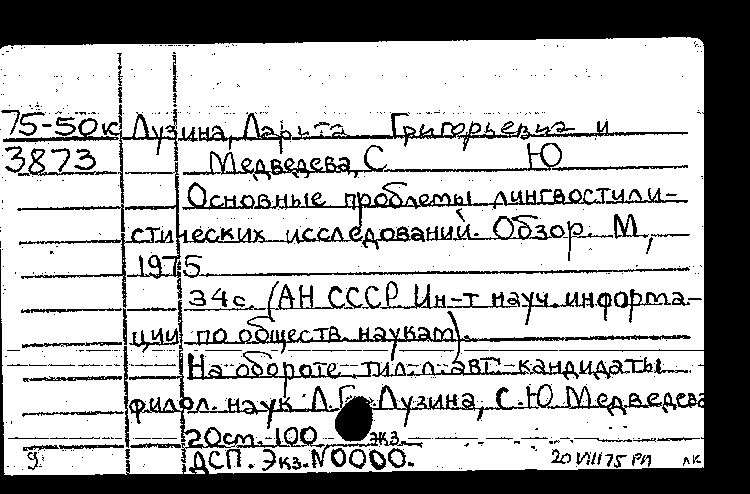 75-50к Лузина, Ларита Григорьевна и
3873 Медведева, С Ю
Основные проблемы лингвостили-
стических исследований. Обзор. М.,
1975
34 с. (АН СССР Ин-т науч. информа-
ции по обществ. наукам).
На обороте тит. л. авт. кандидаты
филол. наук Л.Г. Лузина, С.Ю Медведева
20 см. 100 экз.
9 ДСП. Экз. N0000. 20 VIII 75 РП лк